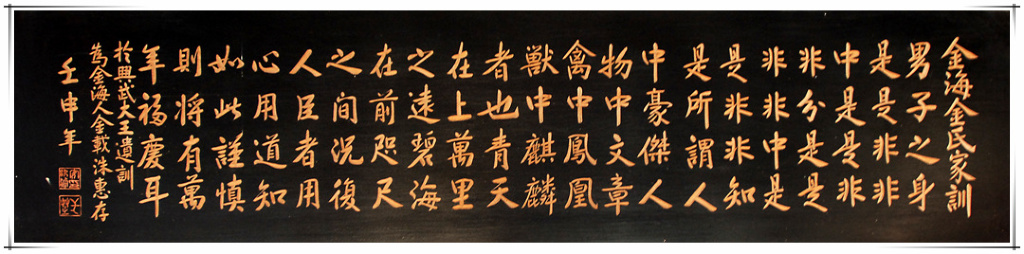 金海金氏家訓
男子之身
是是非非
中是是非
非分是是
非非中是
是非非知
是所謂人
中豪傑人
物中文章
禽中鳳凰
獸中麒麟
者也青天
在上萬里
之遠碧海
在前咫尺
之間況復
人臣者用
心用道知
如此謹慎
則將有萬
年福慶耳
於興武大王遺訓
為金海人金載洙惠存
壬申年